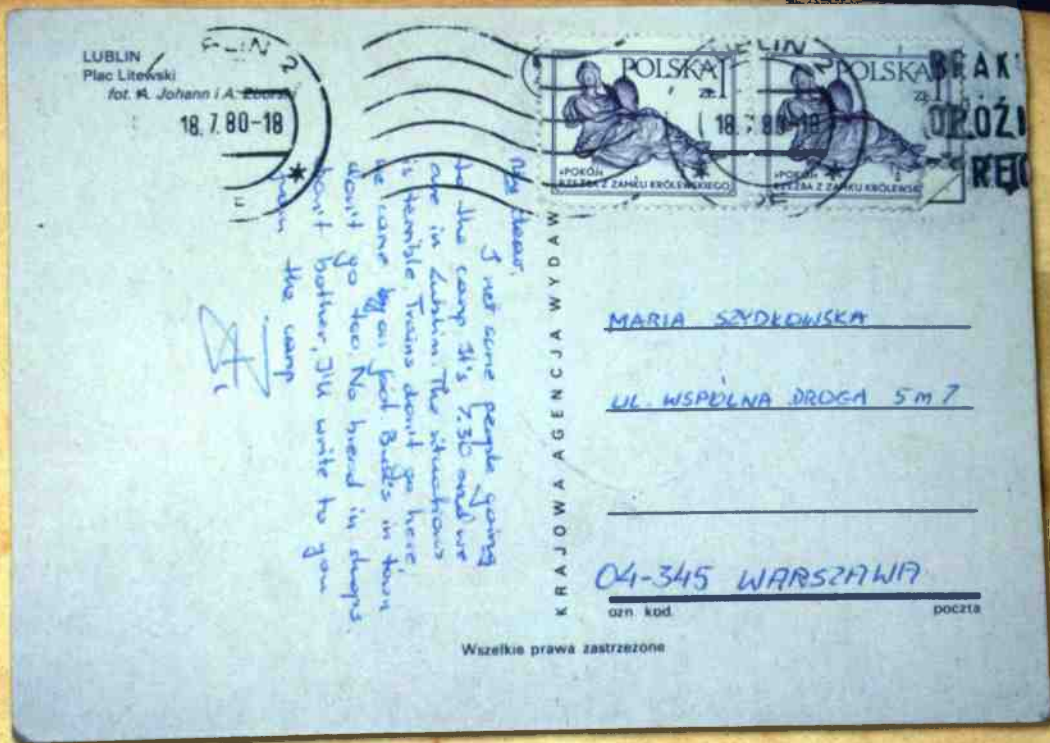 LUBLIN
Plac Litewski
fot. A. Johann i A. Zborski
LIN 2
18. 7. 80-18
POLSKA
ZŁ 1
«POKÓJ»
RZEŹBA Z ZAMKU KRÓLEWSKIEGO
LIN 2
18. 7. 80-18
POLSKA
ZŁ 1
«POKÓJ»
RZEŹBA Z ZAMKU KRÓLEWSK
BRAK
OPÓŹ
RĘC
My dear,
I met some people going
to the camp It's 7.30 and we
are in Lublin. The situation
is terrible. Trains don't go here
we came by foot Buses in town
don't go too. No bread in shops.
Don't bother, I'll write to you
from the camp
KRAJOWA AGENCJA WYDAW
MARIA SZYDŁOWSKA
UL. WSPÓLNA DROGA 5 m 7
04-345 WARSZAWA
ozn. kod. poczta
Wszelkie prawa zastrzeżone